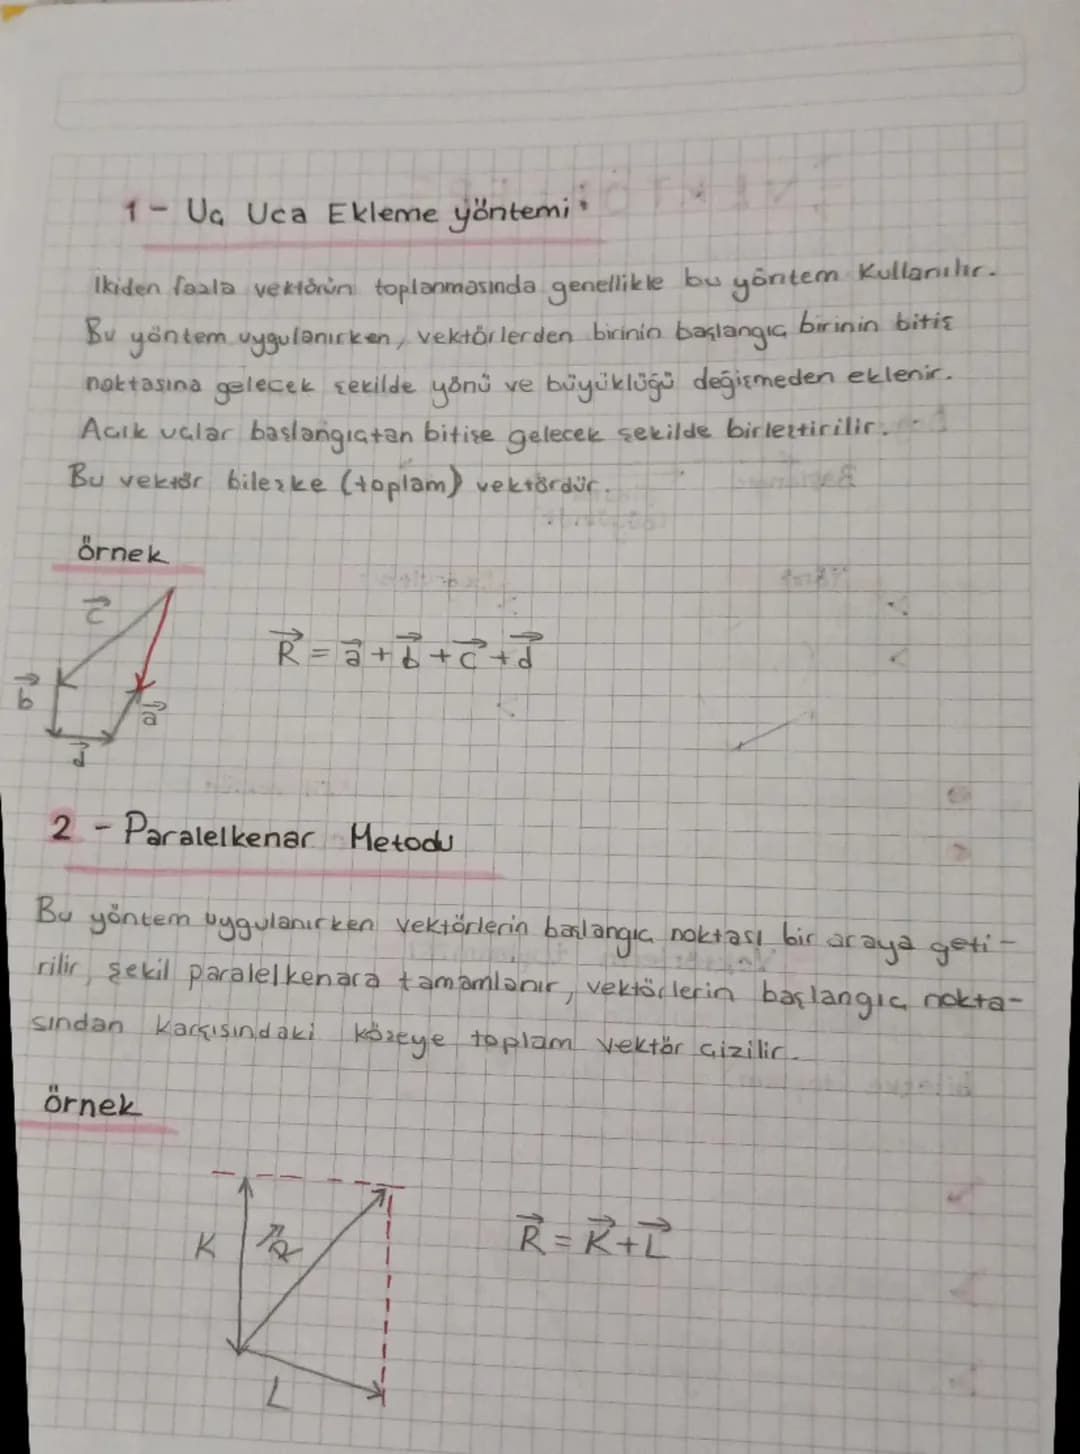 1 - Uç Uca Ekleme yöntemi:
İkiden fazla vektörün toplanmasında genellikle bu yöntem kullanılır.
Bu yöntem uygulanırken, vektörlerden birinin başlangıç birinin bitiş
noktasına gelecek şekilde yönü ve büyüklüğü değişmeden eklenir.
Açık uçlar başlangıçtan bitişe gelecek şekilde birleştirilir.
Bu vektör bileşke (toplam) vektördür.
örnek
c⃗
R⃗ = a⃗ + b⃗ + c⃗ + d⃗
b⃗
a⃗
d⃗
2 - Paralelkenar Metodu
Bu yöntem uygulanırken vektörlerin başlangıç noktası bir araya geti-
rilir, şekil paralelkenara tamamlanır, vektörlerin başlangıç nokta-
sından karşısındaki köşeye toplam vektör çizilir.
örnek
K
R⃗
R⃗ = K⃗ + L⃗
L